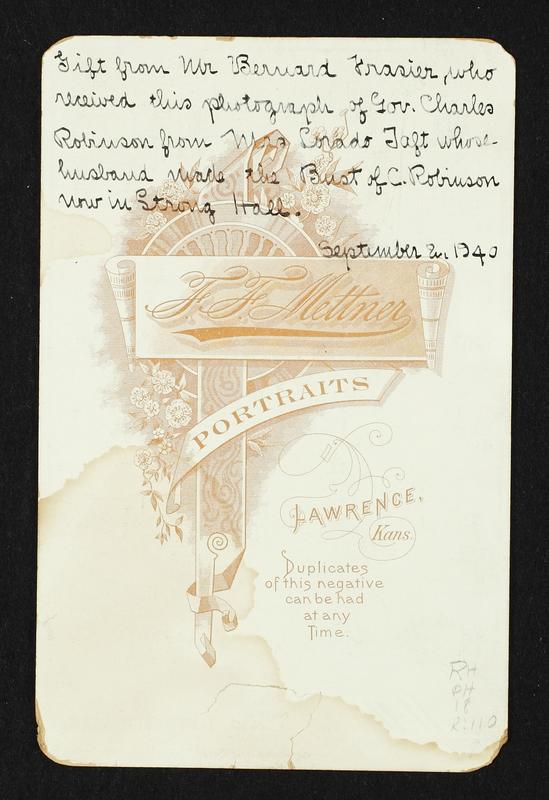 Gift from Mr Bernard Frasier, who
received this photograph of Gov. Charles
Robinson from Mrs Lorado Taft whose
husband made the Bust of C. Robinson
now in Strong Hall.
September 2, 1940
F. F. Mettner
PORTRAITS
LAWRENCE,
Kans.
Duplicates
of this negative
can be had
at any
Time.
RH
PH
18
R:11.2